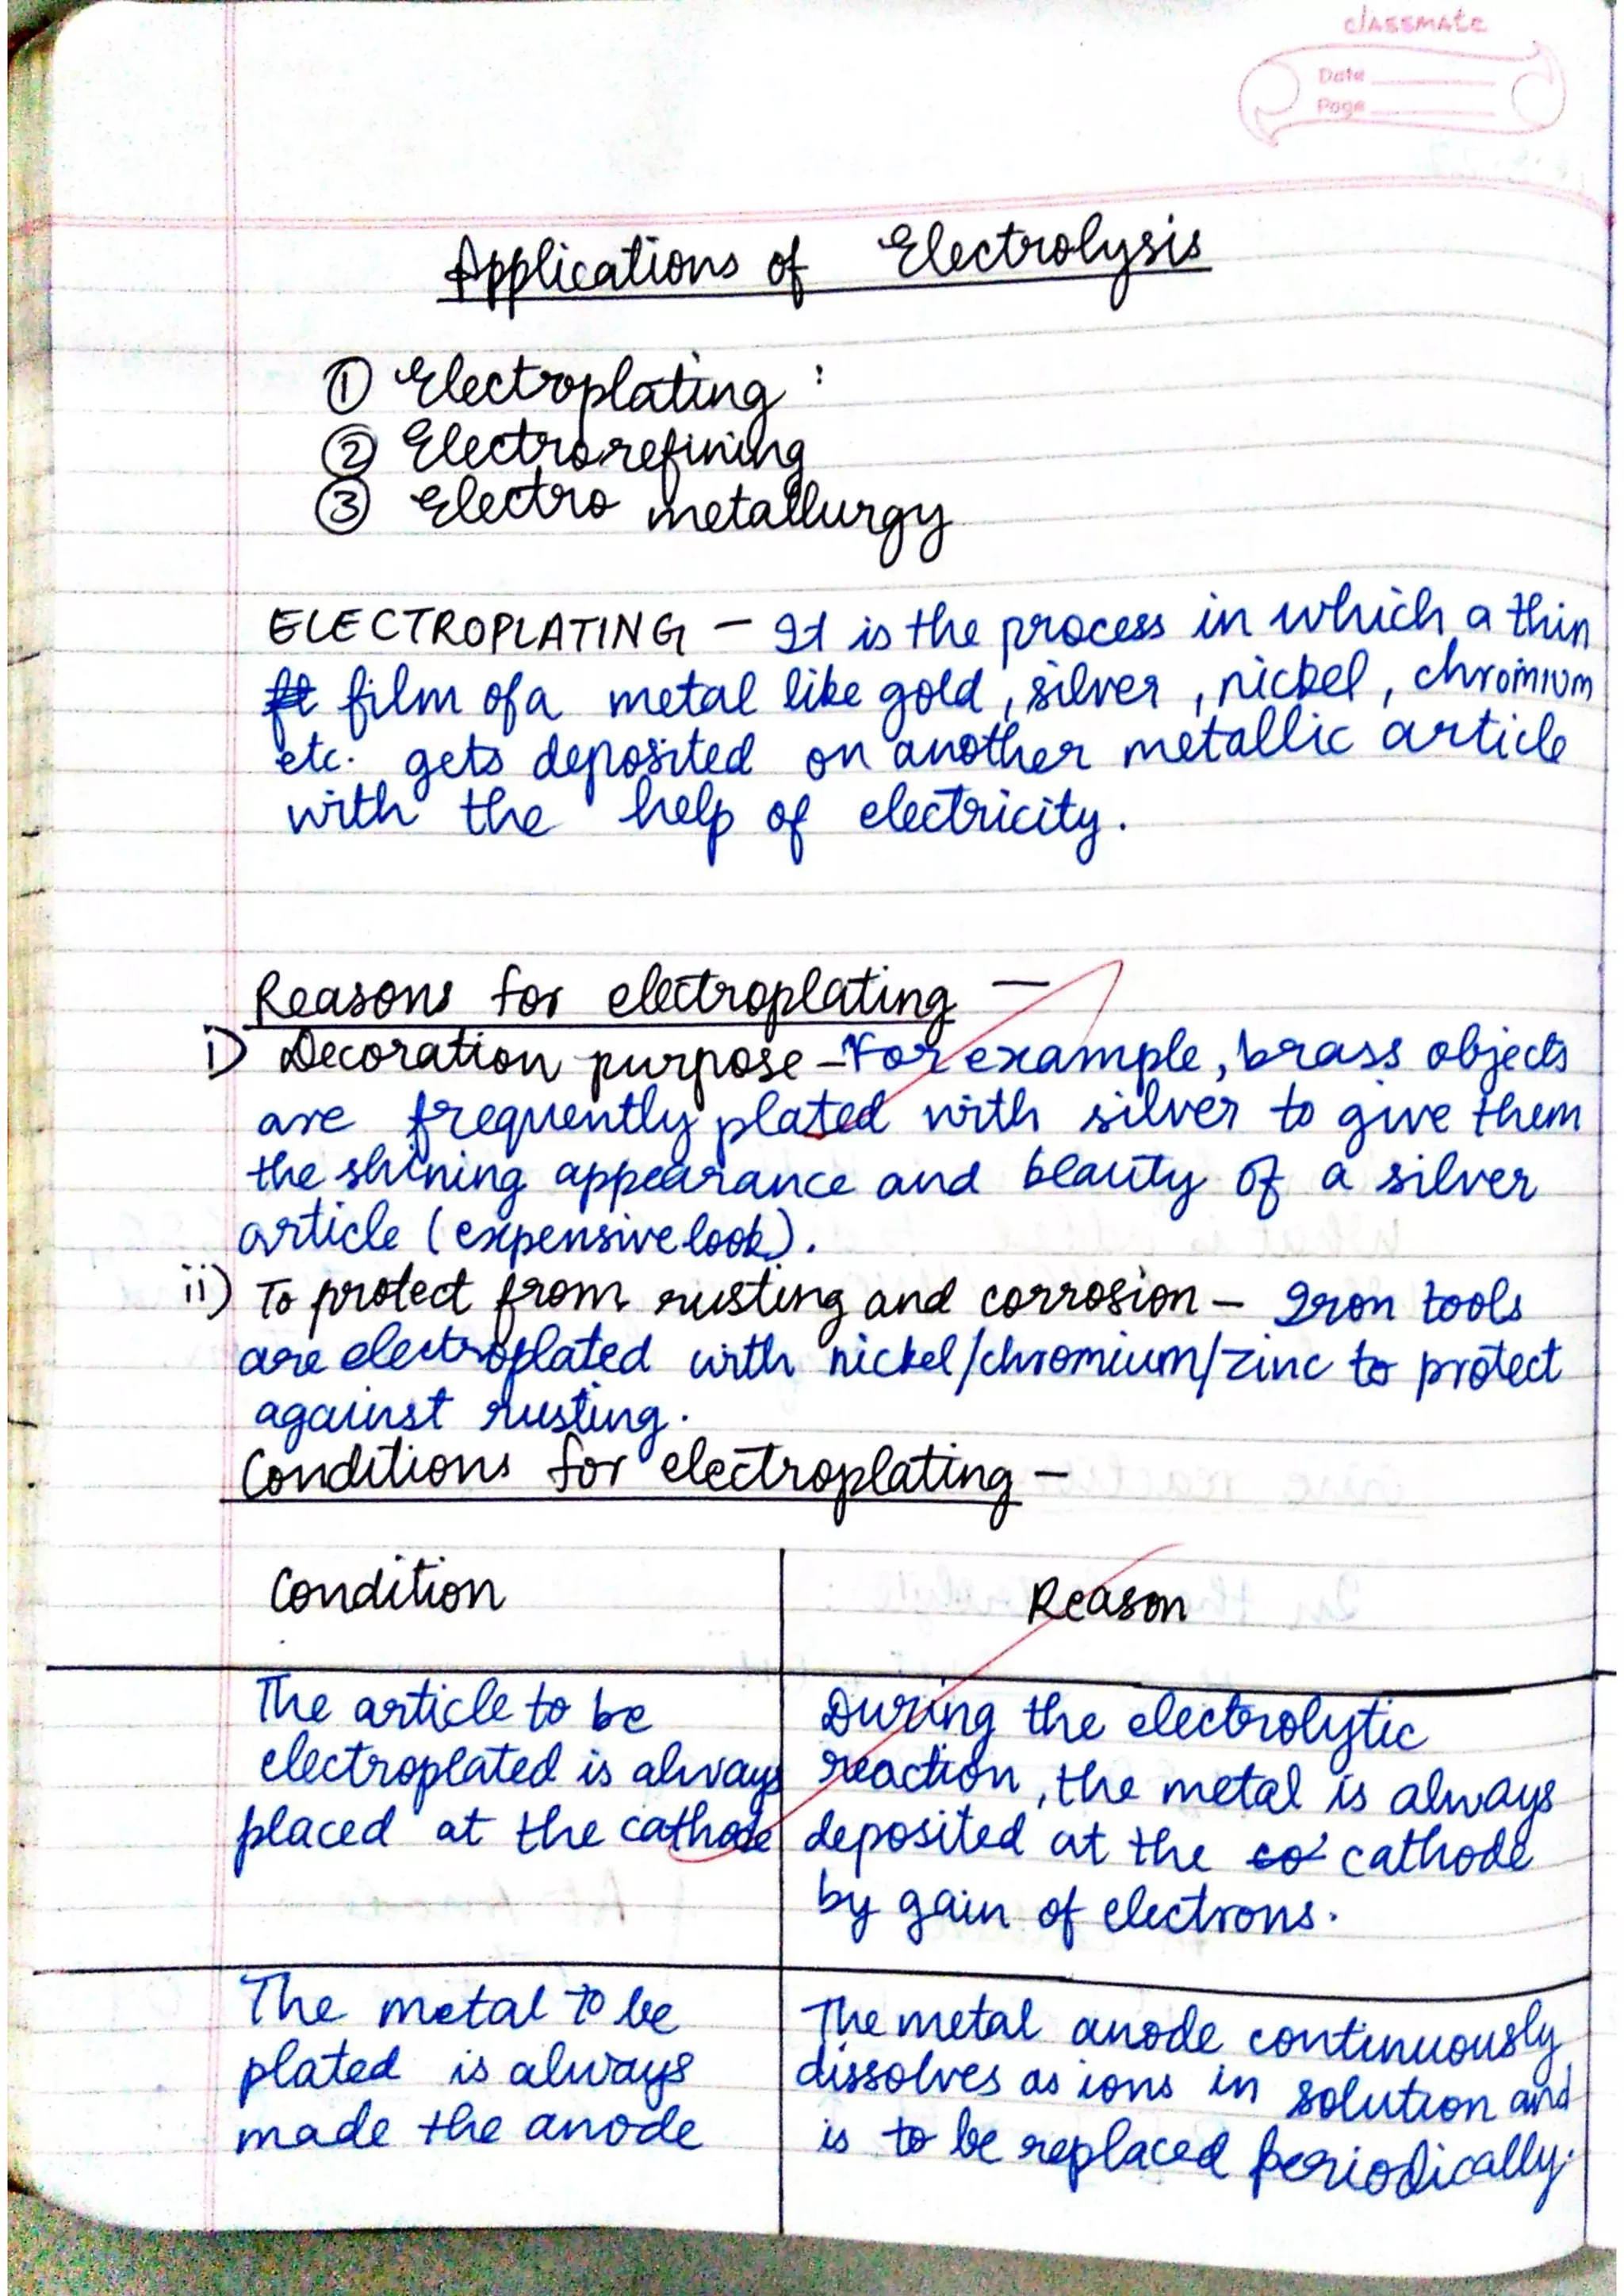 classmate
Date
Page
Applications of Electrolysis
① Electroplating :
② Electrorefining
③ Electro metallurgy
ELECTROPLATING – It is the process in which a thin
film of a metal like gold, silver, nickel, chromium
etc. gets deposited on another metallic article
with the help of electricity.
Reasons for electroplating —
i) Decoration purpose – For example, brass objects
are frequently plated with silver to give them
the shining appearance and beauty of a silver
article (expensive look).
ii) To protect from rusting and corrosion – Iron tools
are electroplated with nickel/chromium/zinc to protect
against rusting.
Conditions for electroplating –
Condition
Reason
The article to be
electroplated is always
placed at the cathode
During the electrolytic
reaction, the metal is always
deposited at the cathode
by gain of electrons.
The metal to be
plated is always
made the anode
The metal anode continuously
dissolves as ions in solution and
is to be replaced periodically.